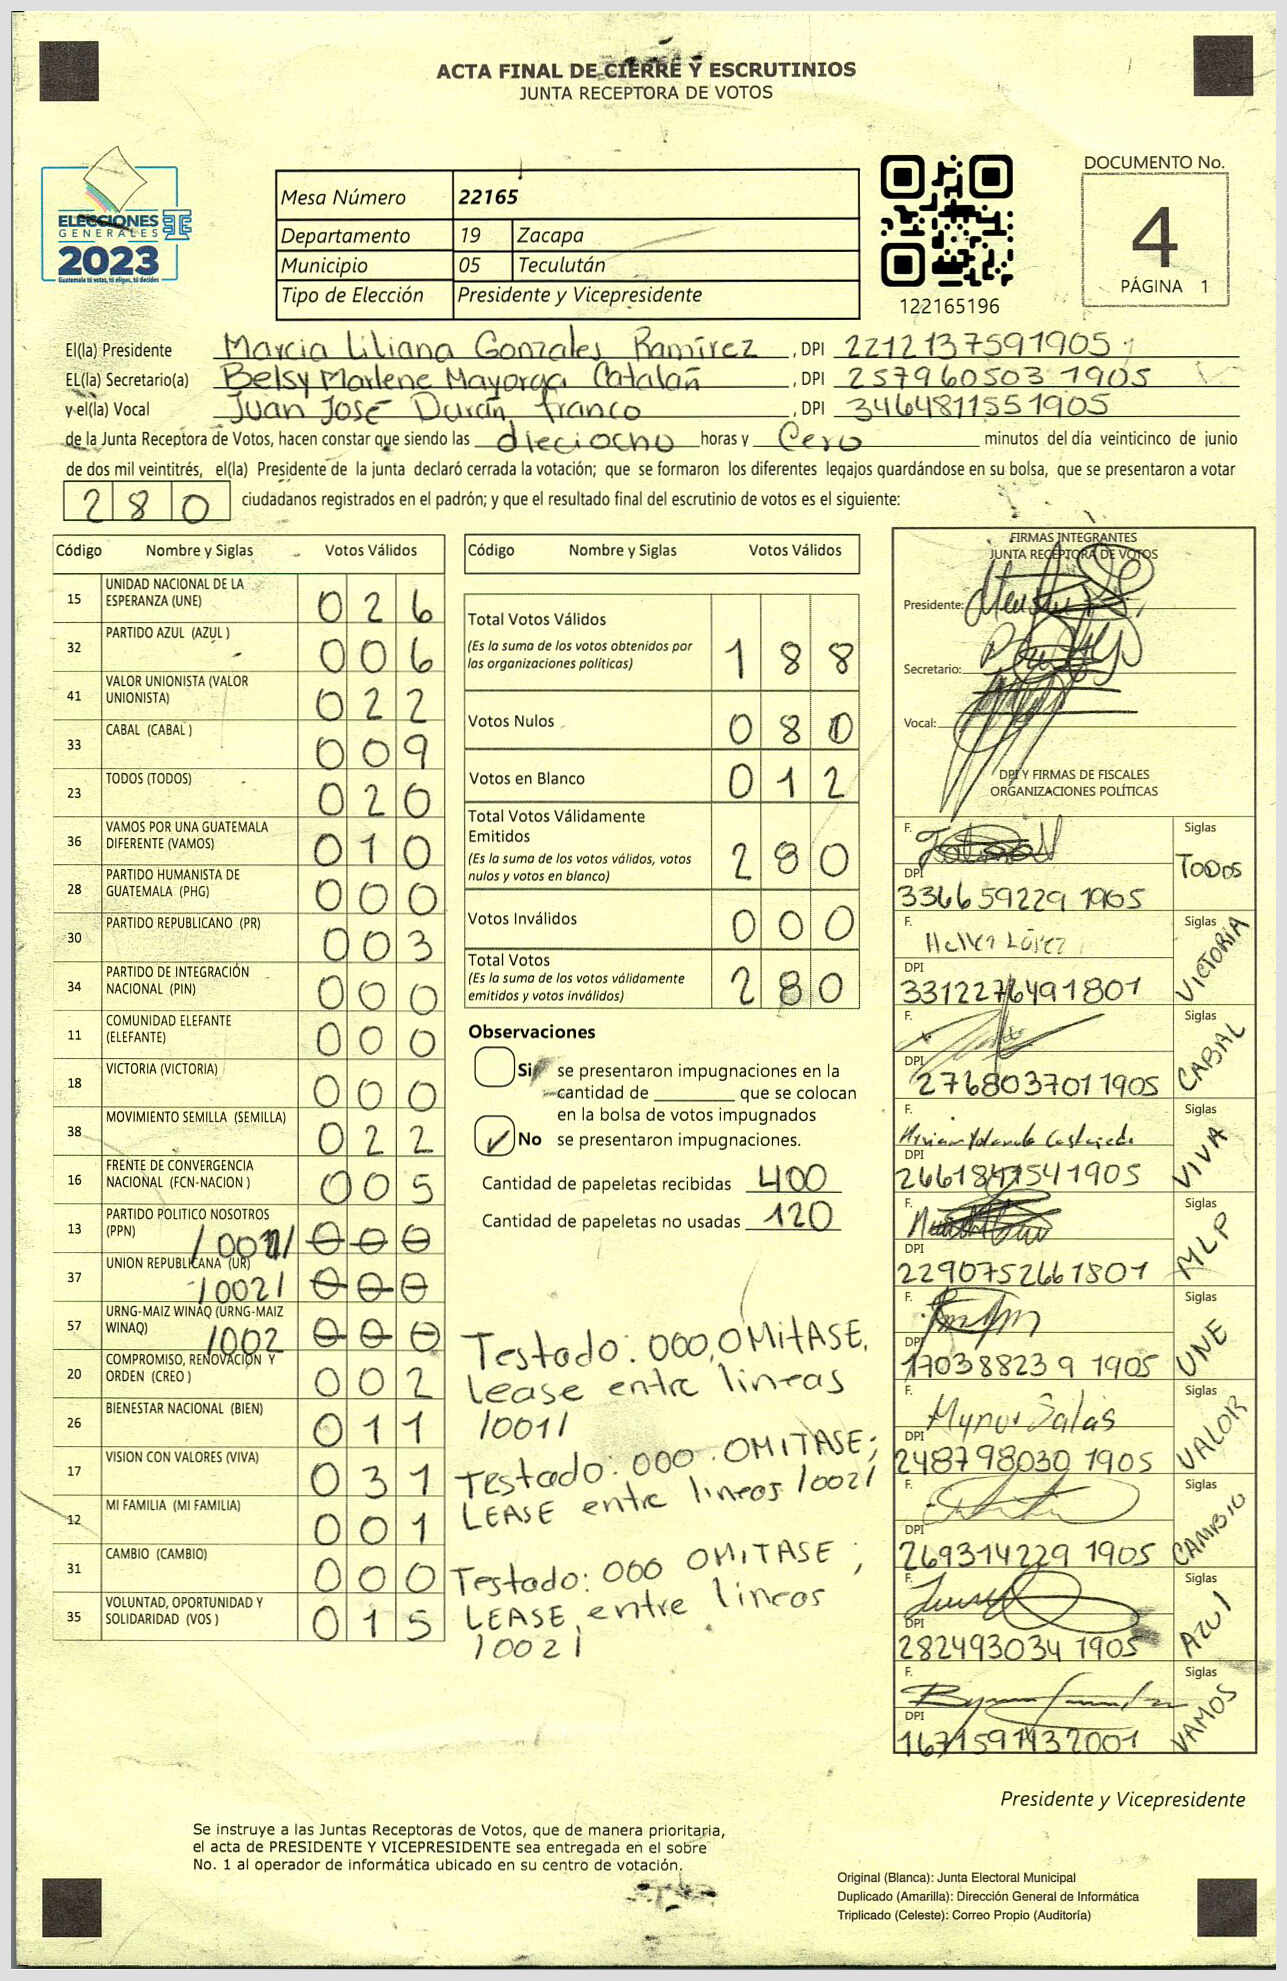 ACTA FINAL DE CIERRE Y ESCRUTINIOS
JUNTA RECEPTORA DE VOTOS
ELECCIONES
GENERALES
2023
Guatemala tú votas, tú eliges, tú decides
Mesa Número 22165
Departamento 19 Zacapa
Municipio 05 Teculután
Tipo de Elección Presidente y Vicepresidente
122165196
DOCUMENTO No.
4
PÁGINA 1
El(la) Presidente Marcia Liliana Gonzales Ramírez , DPI 2212137591905
EL(la) Secretario(a) Belsy Marlene Mayorga Catalañ , DPI 257960503 1905
y el(la) Vocal Juan José Durán franco , DPI 3464811551905
de la Junta Receptora de Votos, hacen constar que siendo las dieciocho horas y Cero minutos del día veinticinco de junio
de dos mil veintitrés, el(la) Presidente de la junta declaró cerrada la votación; que se formaron los diferentes legajos guardándose en su bolsa, que se presentaron a votar
280 ciudadanos registrados en el padrón; y que el resultado final del escrutinio de votos es el siguiente:
Código Nombre y Siglas Votos Válidos
15 UNIDAD NACIONAL DE LA ESPERANZA (UNE) 026
32 PARTIDO AZUL (AZUL ) 006
41 VALOR UNIONISTA (VALOR UNIONISTA) 022
33 CABAL (CABAL ) 009
23 TODOS (TODOS) 020
36 VAMOS POR UNA GUATEMALA DIFERENTE (VAMOS) 010
28 PARTIDO HUMANISTA DE GUATEMALA (PHG) 000
30 PARTIDO REPUBLICANO (PR) 003
34 PARTIDO DE INTEGRACIÓN NACIONAL (PIN) 000
11 COMUNIDAD ELEFANTE (ELEFANTE) 000
18 VICTORIA (VICTORIA) 000
38 MOVIMIENTO SEMILLA (SEMILLA) 022
16 FRENTE DE CONVERGENCIA NACIONAL (FCN-NACION ) 005
13 PARTIDO POLITICO NOSOTROS (PPN) /001/ 000
37 UNION REPUBLICANA (UR) /002/ 000
57 URNG-MAIZ WINAQ (URNG-MAIZ WINAQ) /002 000
20 COMPROMISO, RENOVACIÓN Y ORDEN (CREO ) 002
26 BIENESTAR NACIONAL (BIEN) 011
17 VISION CON VALORES (VIVA) 031
12 MI FAMILIA (MI FAMILIA) 001
31 CAMBIO (CAMBIO) 000
35 VOLUNTAD, OPORTUNIDAD Y SOLIDARIDAD (VOS ) 015
Código Nombre y Siglas Votos Válidos
Total Votos Válidos
(Es la suma de los votos obtenidos por
las organizaciones políticas) 188
Votos Nulos 080
Votos en Blanco 012
Total Votos Válidamente
Emitidos
(Es la suma de los votos válidos, votos
nulos y votos en blanco) 280
Votos Inválidos 000
Total Votos
(Es la suma de los votos válidamente
emitidos y votos inválidos) 280
Observaciones
Si se presentaron impugnaciones en la
cantidad de ________ que se colocan
en la bolsa de votos impugnados
No se presentaron impugnaciones.
Cantidad de papeletas recibidas 400
Cantidad de papeletas no usadas 120
Testado: 000, OMITASE,
Lease entre lineas
/001/
Testado: 000 OMITASE;
LEASE entre lineas /002/
Testado: 000 OMITASE ;
LEASE entre lineas
/002/
FIRMAS INTEGRANTES
JUNTA RECEPTORA DE VOTOS
Presidente:
Secretario:
Vocal:
DPI Y FIRMAS DE FISCALES
ORGANIZACIONES POLÍTICAS
F. Siglas
DPI TODOS
336659229 1905
F. Siglas
DPI VICTORIA
3312276491801
F. Siglas
DPI CABAL
276803701 1905
F. Siglas
DPI VIVA
2661847541905
F. Siglas
DPI MLP
2290752661801
F. Siglas
DPI UNE
170388239 1905
F. Mynor Salas Siglas
DPI VALOR
248798030 1905
F. Siglas
DPI CAMBIO
269314229 1905
F. Siglas
DPI AZUL
282493034 1905
F. Siglas
DPI VAMOS
1671591432001
Presidente y Vicepresidente
Se instruye a las Juntas Receptoras de Votos, que de manera prioritaria,
el acta de PRESIDENTE Y VICEPRESIDENTE sea entregada en el sobre
No. 1 al operador de informática ubicado en su centro de votación.
Original (Blanca): Junta Electoral Municipal
Duplicado (Amarilla): Dirección General de Informática
Triplicado (Celeste): Correo Propio (Auditoría)